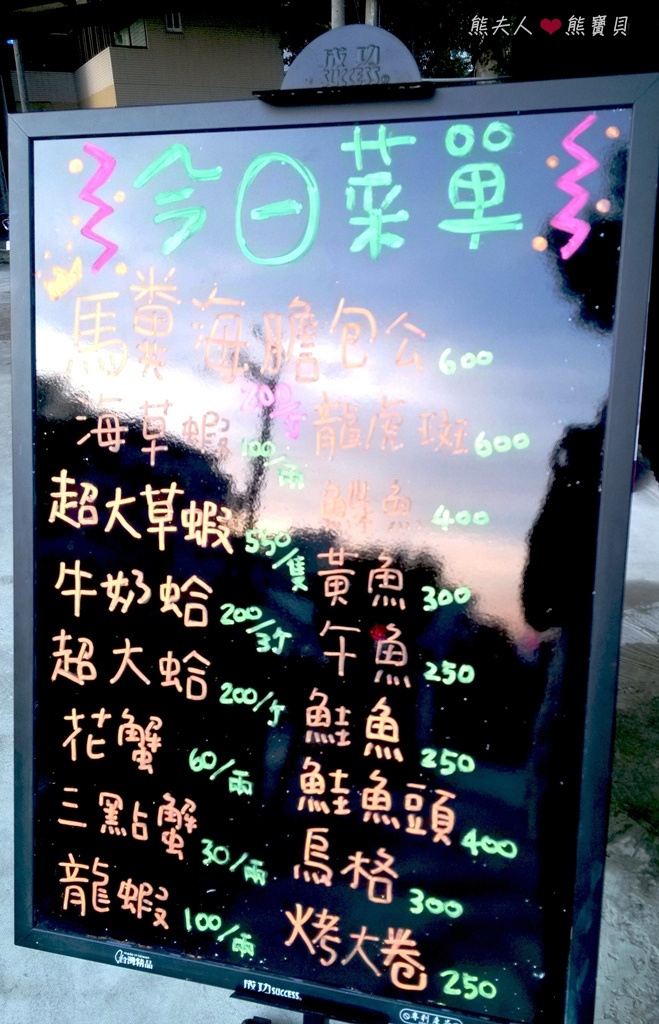 熊夫人❤熊寶貝
成功
SUCCESS
今日菜單
馬糞海膽包公 600
海草蝦 100/兩
超大草蝦 550/隻
牛奶蛤 200/3斤
超大蛤 200/斤
花蟹 60/兩
三點蟹 30/兩
龍蝦 100/兩
龍虎斑 600
400
黃魚 300
午魚 250
鮭魚 250
鮭魚頭 400
烏格 300
烤大卷 250
台灣精品
成功SUCCESS